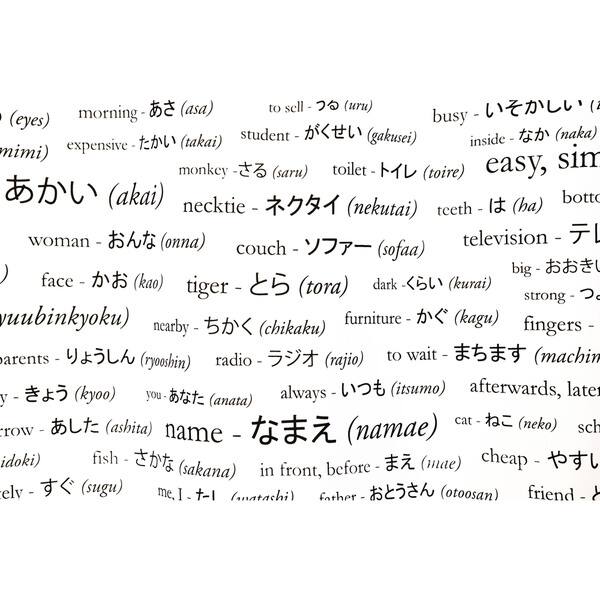 (eyes) morning - あさ (asa) to sell - つる (uru) busy - いそかしい
mimi) expensive - たかい (takai) student - がくせい (gakusei) inside - なか (naka)
monkey - さる (saru) toilet - トイレ (toire) easy, sim
あかい (akai) necktie - ネクタイ (nekutai) teeth - は (ha) botto
woman - おんな (onna) couch - ソファー (sofaa) television - テレ
face - かお (kao) tiger - とら (tora) dark - くらい (kurai) big - おおき
strong - つ
yuubinkyoku) nearby - ちかく (chikaku) furniture - かぐ (kagu) fingers -
parents - りょうしん (ryooshin) radio - ラジオ (rajio) to wait - まちます (machim
y - きょう (kyoo) you - あなた (anata) always - いつも (itsumo) afterwards, later
rrow - あした (ashita) name - なまえ (namae) cat - ねこ (neko) sch
idoki) fish - さかな (sakana) in front, before - まえ (mae) cheap - やすい
tely - すぐ (sugu) me, I - たし (watashi) father - おとうさん (otoosan) friend -